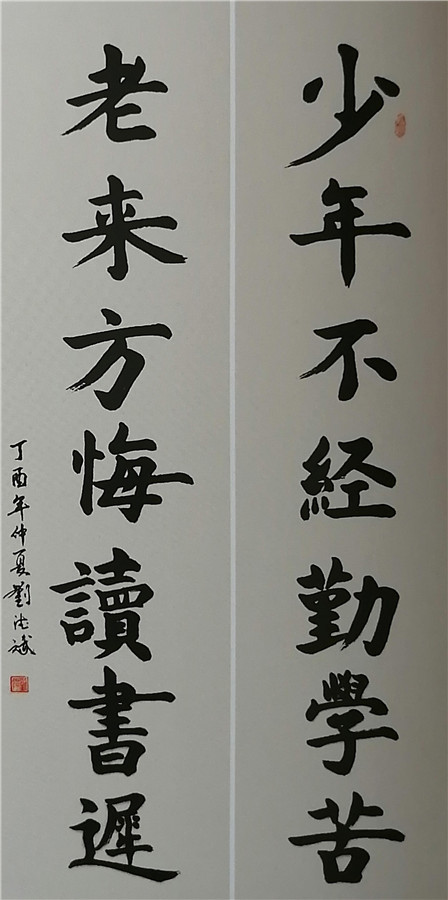 少年不経勤學苦
老来方悔讀書遲
丁酉年仲夏劉法斌